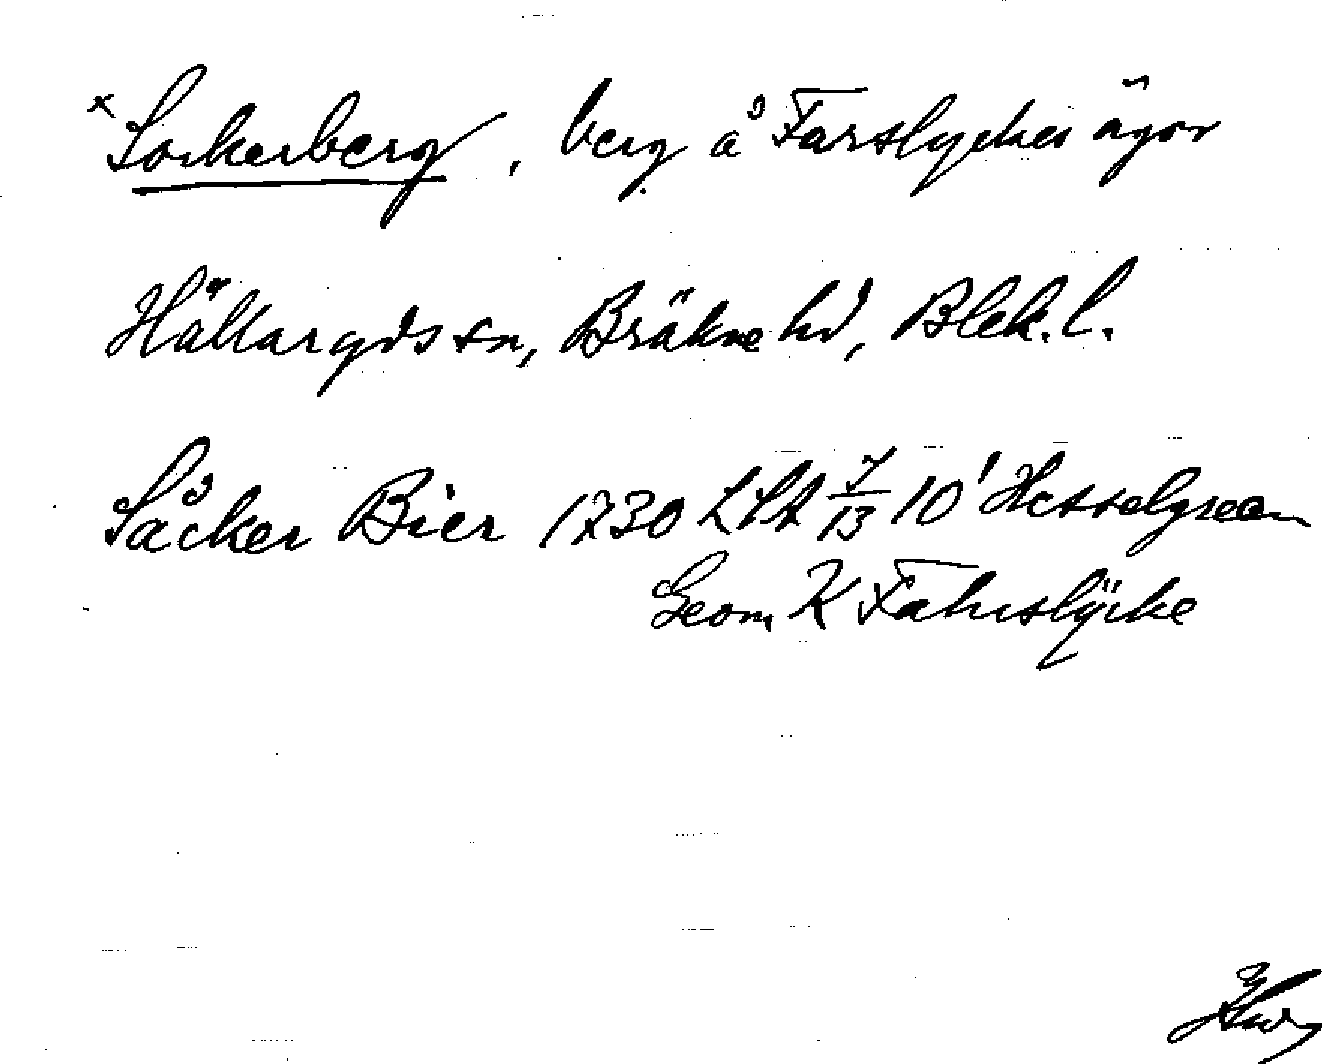 x Sockerberg, berg å Farslyckes ägor
Hällaryds sn, Bräkne hd, Blek. l.
Såcker Bier 1730 LSA 7/13 10¹ Hesselgreen
Geom K Fahrslÿcke